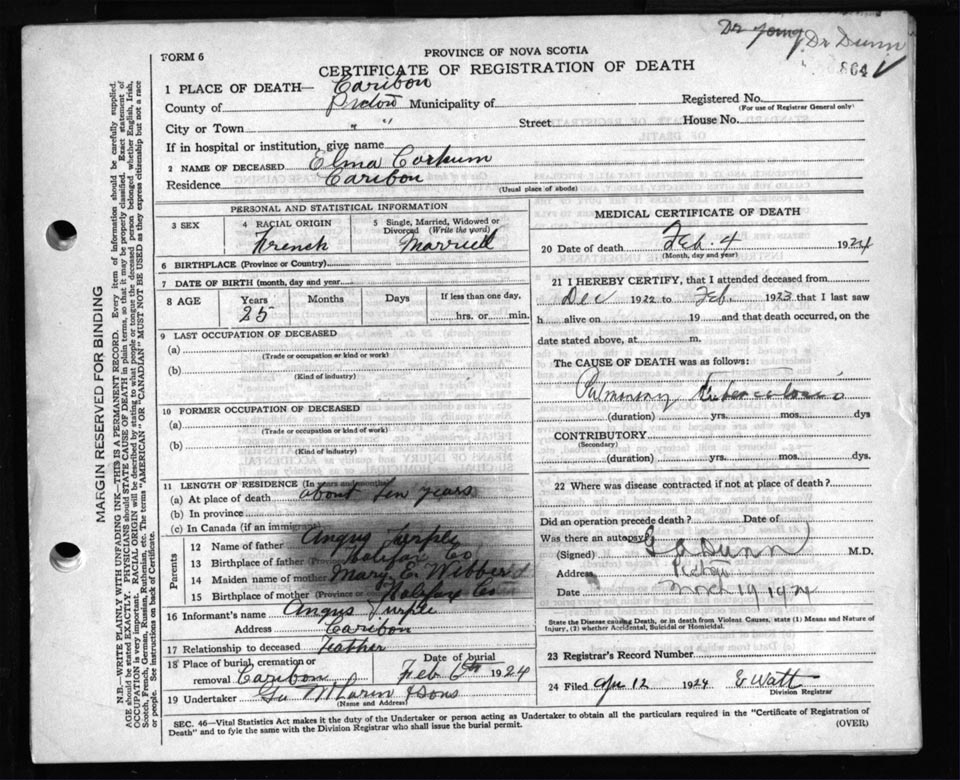 Dr Young
Dr Dunn
864
FORM 6
PROVINCE OF NOVA SCOTIA
CERTIFICATE OF REGISTRATION OF DEATH
1 PLACE OF DEATH— Caribou
County of Pictou Municipality of
Registered No.
(For use of Registrar General only)
City or Town " " Street House No.
If in hospital or institution, give name
2 NAME OF DECEASED Elma Corkum
Residence Caribou
(Usual place of abode)
PERSONAL AND STATISTICAL INFORMATION
3 SEX
4 RACIAL ORIGIN
French
5 Single, Married, Widowed or
Divorced (Write the word)
Married
6 BIRTHPLACE (Province or Country)
7 DATE OF BIRTH (month, day and year)
8 AGE Years Months Days If less than one day,
25 hrs. or min.
9 LAST OCCUPATION OF DECEASED
(a)
(Trade or occupation or kind of work)
(b)
(Kind of industry)
10 FORMER OCCUPATION OF DECEASED
(a)
(Trade or occupation or kind of work)
(b)
(Kind of industry)
11 LENGTH OF RESIDENCE (In years and months)
(a) At place of death about ten years
(b) In province
(c) In Canada (if an immigrant)
Parents
12 Name of father Angus Purple
13 Birthplace of father (Province Halifax Co
14 Maiden name of mother Mary E. Webber
15 Birthplace of mother (Province or Country) Halifax Co
16 Informant's name Angus Purple
Address Caribou
17 Relationship to deceased Father
18 Place of burial, cremation or
removal Caribou
Date of burial
Feb 6th 1924
19 Undertaker & Sons
(Name and Address)
MEDICAL CERTIFICATE OF DEATH
20 Date of death Feb. 4 1924
(Month, day and year)
21 I HEREBY CERTIFY, that I attended deceased from
Dec 1922 to Feb. 1923 that I last saw
h alive on 19 and that death occurred, on the
date stated above, at m.
The CAUSE OF DEATH was as follows:
Pulmonary Tuberculosis
(duration) yrs. mos. dys
CONTRIBUTORY
(Secondary)
(duration) yrs. mos. dys.
22 Where was disease contracted if not at place of death?
Did an operation precede death? Date of
Was there an autopsy
(Signed) G A Dunn M.D.
Address Pictou
Date March 19 1924
State the Disease causing Death, or in death from Violent Causes, state (1) Means and Nature of
Injury, (2) whether Accidental, Suicidal or Homicidal.
23 Registrar's Record Number
24 Filed Apr 12 1924 E Watt
Division Registrar
SEC. 46—Vital Statistics Act makes it the duty of the Undertaker or person acting as Undertaker to obtain all the particulars required in the "Certificate of Registration of
Death" and to fyle the same with the Division Registrar who shall issue the burial permit.
(OVER)
MARGIN RESERVED FOR BINDING
N.B.—WRITE PLAINLY WITH UNFADING INK—THIS IS A PERMANENT RECORD. Every item of information should be carefully supplied.
AGE should be stated EXACTLY. PHYSICIANS should STATE CAUSE OF DEATH in plain terms, so that it may be properly classified. Exact statement of
OCCUPATION is very important. RACIAL ORIGIN will be described by stating to what people or tongue the deceased person belonged whether English, Irish,
Scotch, French, German, Russian, Ruthenian, etc. The terms "AMERICAN" or "CANADIAN" MUST NOT BE USED as they express citizenship but not a race
or people. See instructions on back of Certificate.